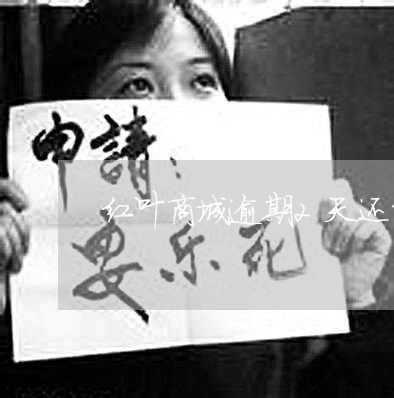 申請：
红叶商城逾期2天还
安乐死